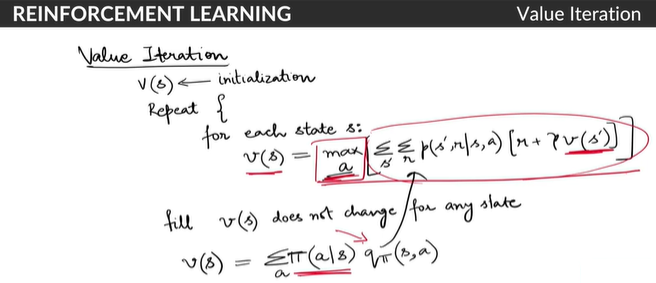 REINFORCEMENT LEARNING
Value Iteration
Value Iteration
V(s) ← initialization
Repeat {
for each state s:
v(s) = max_a [ Σ_s' Σ_r p(s',r|s,a) [r + γ v(s')] ]
till v(s) does not change for any state
v(s) = Σ_a π(a|s) q_π(s,a)